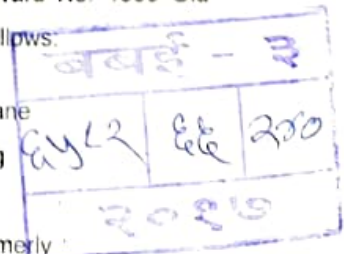 llows:
बबई - ३
ane
g ६५८२ ६६ २४०
२०१७
merly :